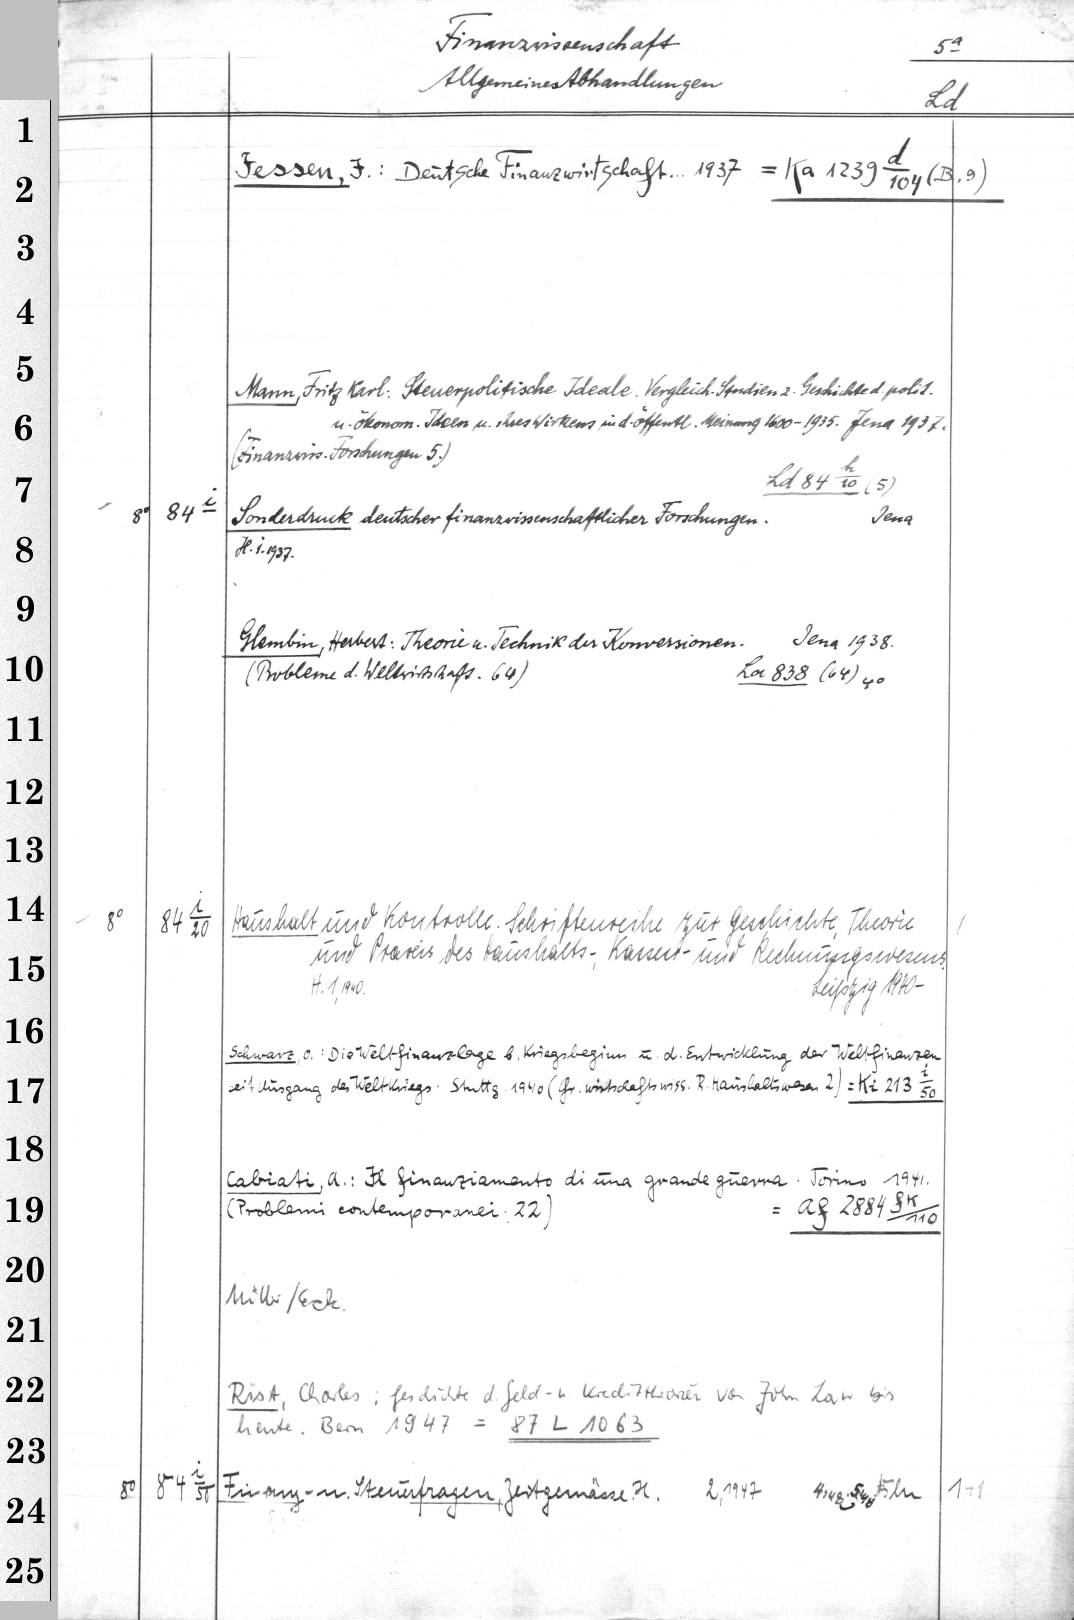 Finanzwissenschaft 5ª
Allgemeines Abhandlungen Ld
1
Jessen, J.: Deutsche Finanzwirtschaft... 1937 = Ka 1239 d/104 (B. 9)
2
3
4
5
Mann, Fritz Karl: Steuerpolitische Ideale. Vergleich. Studien z. Geschichte d. polit.
6
u. ökonom. Ideen u. ihres Wirkens in d. öffentl. Meinung 1600-1935. Jena 1937.
(Finanzwiss. Forschungen 5.)
7
Ld 84 h/20 (5)
8° 84 i Sonderdruck deutscher finanzwissenschaftlicher Forschungen. Jena
8
H. 1. 1937.
9
Glembin, Herbert: Theorie u. Technik der Konversionen. Jena 1938.
10
(Probleme d. Weltwirtschaft. 64) La 838 (64) 4°
11
12
13
14
8° 84 i/20 Haushalt und Kontrolle. Schriftenreihe zur Geschichte, Theorie 1
15
und Praxis des Haushalts-, Kassen- und Rechnungswesens.
H. 1, 1940. Leipzig 1940-
16
Schwarz, O.: Die Weltfinanzlage b. Kriegsbeginn u. d. Entwicklung der Weltfinanzen
17
seit Ausgang des Weltkriegs. Stuttg. 1940 (Gr. wirtschaftswiss. R. Haushaltswesen 2) = Ki 213 i/50
18
Cabiati, A.: Il finanziamento di una grande guerra. Torino 1941.
19
(Problemi contemporanei. 22) = Af 2884 fk/110
20
Müller/Eck.
21
22
Rist, Charles: Geschichte d. Geld- u Kredittheorien von John Law bis
heute. Bern 1947 = 87 L 1063
23
8° 84 i/50 Finanz- u. Steuerfragen, Zeitgemässe. H. 2, 1947 4,48. 5,48 Köln 1+1
24
25